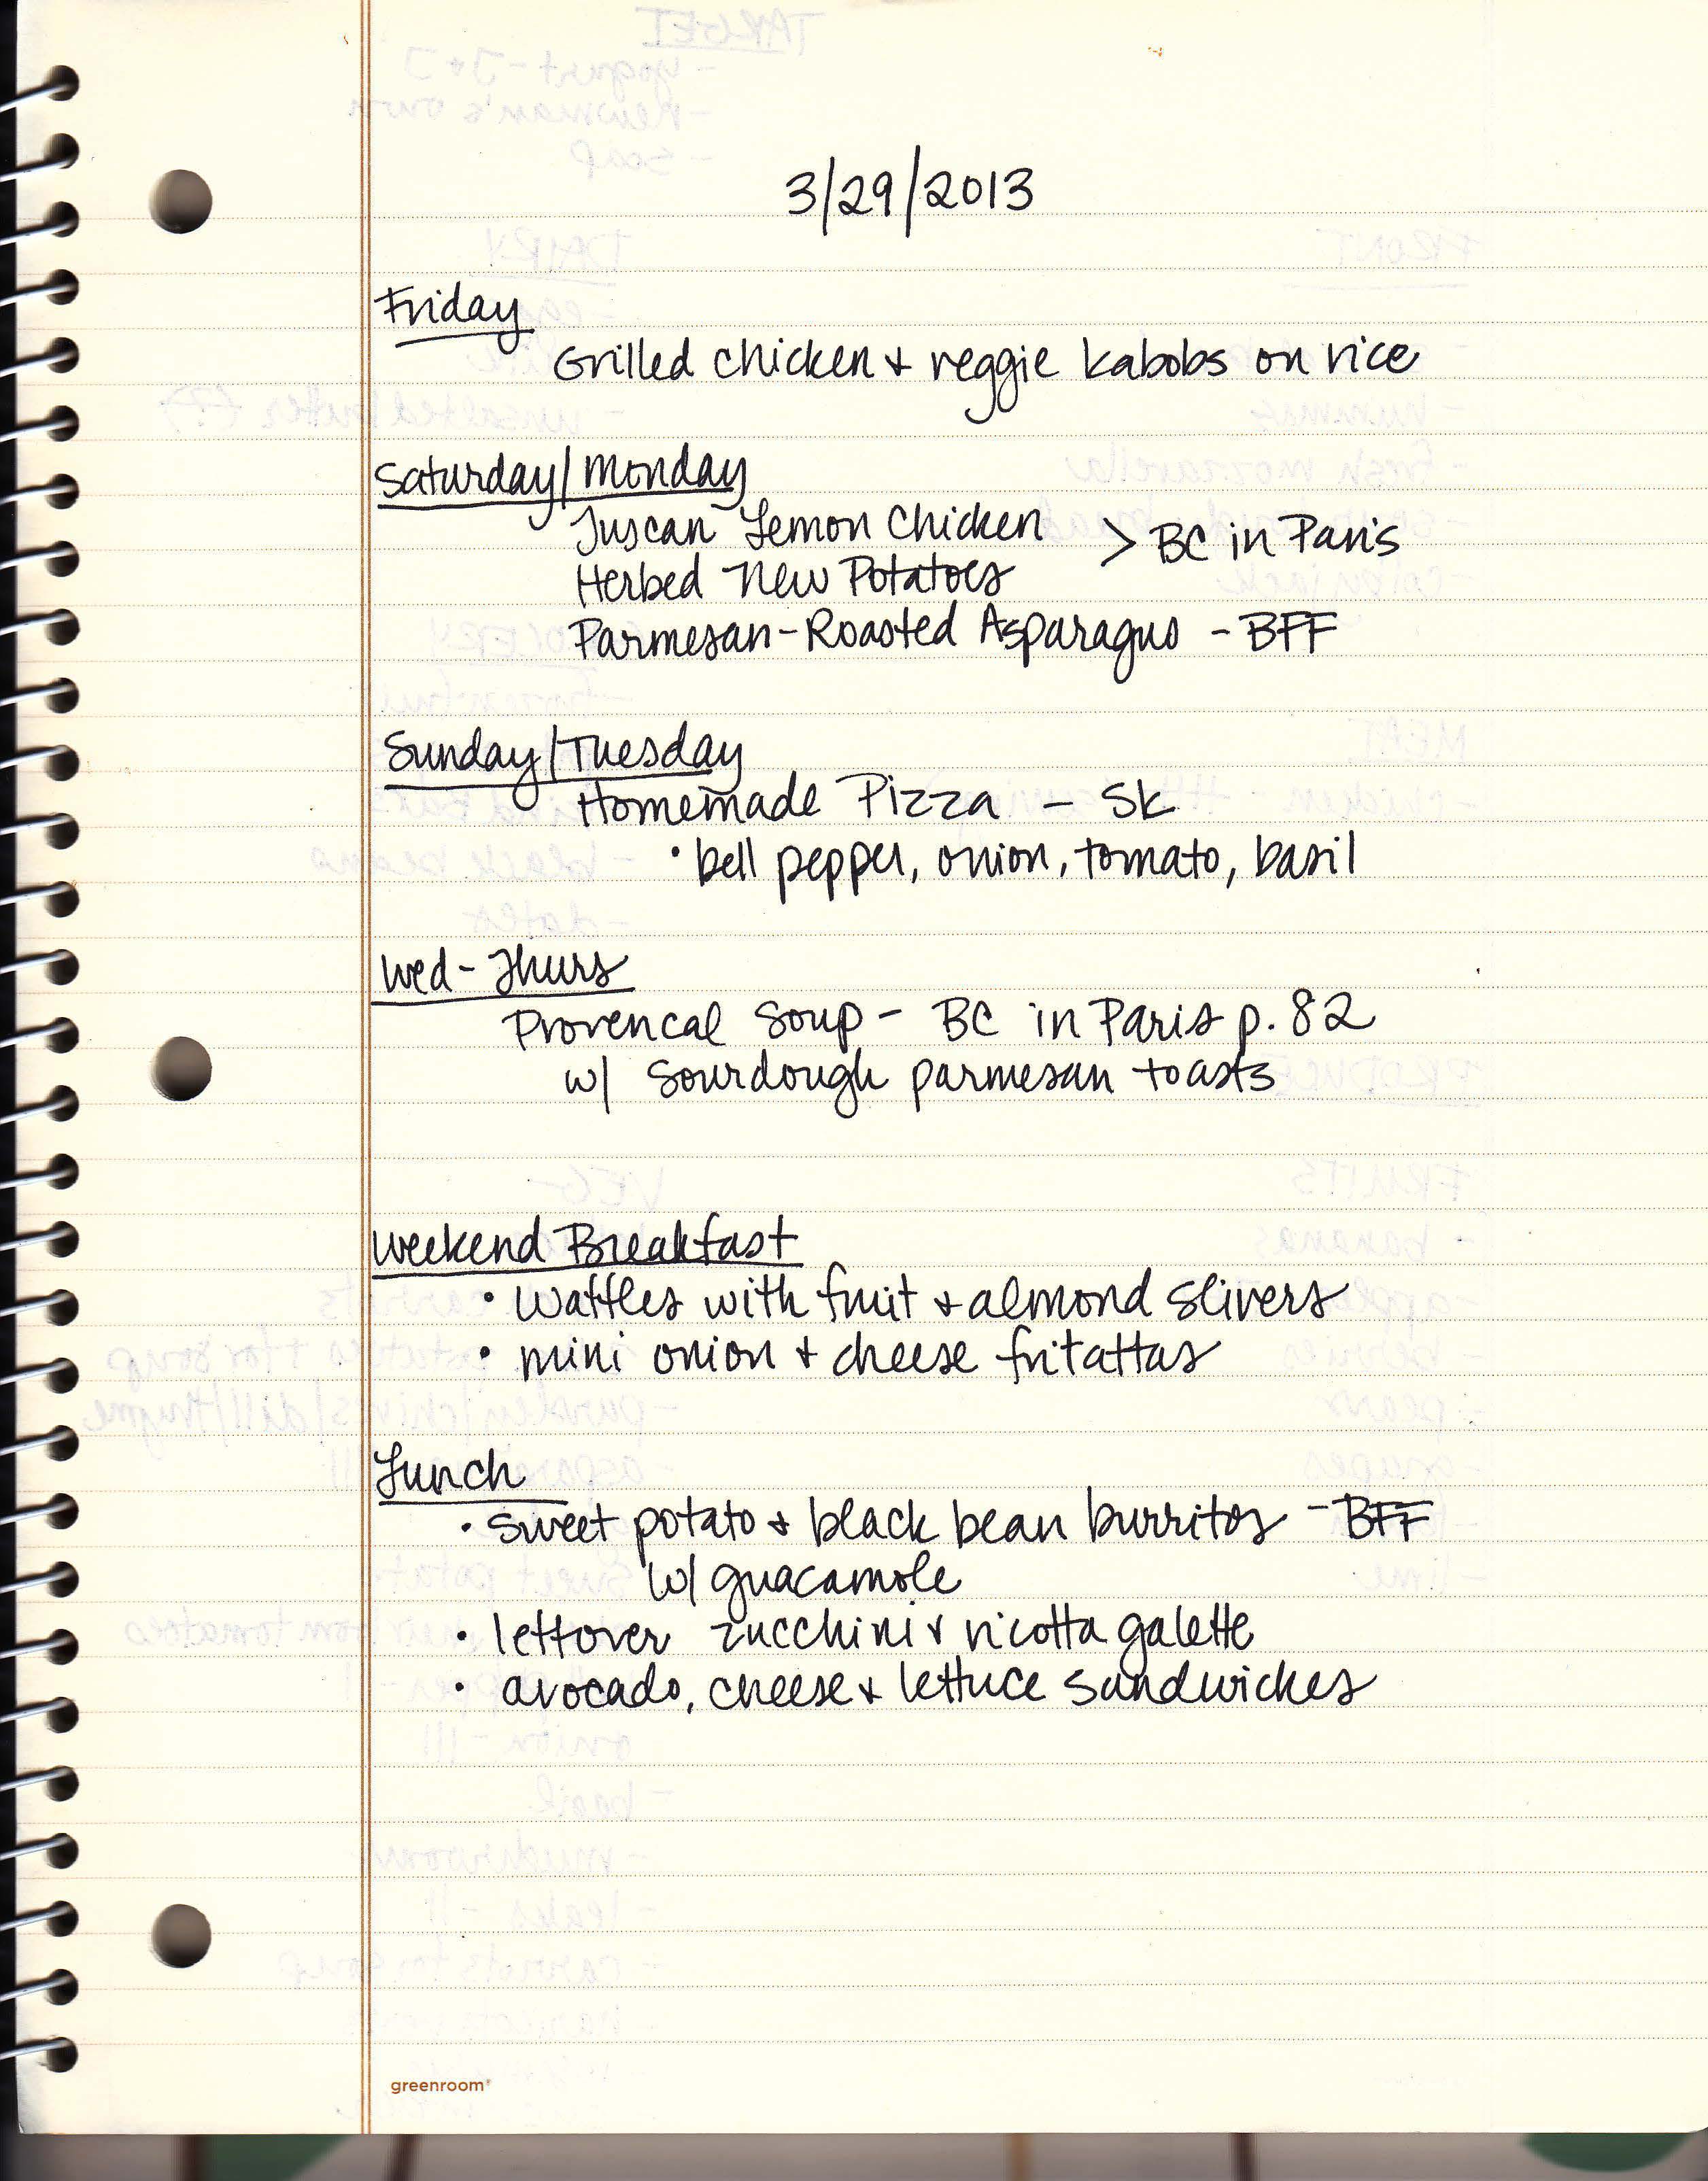 3/29/2013
Friday
Grilled chicken + veggie kabobs on rice
Saturday/Monday
Tuscan Lemon Chicken
> BC in Paris
Herbed New Potatoes
Parmesan-Roasted Asparagus - BFF
Sunday/Tuesday
Homemade Pizza - SK
• bell pepper, onion, tomato, basil
Wed - Thurs
Provencal Soup - BC in Paris p. 82
w/ Sourdough parmesan toasts
Weekend Breakfast
• Waffles with fruit + almond slivers
• mini onion + cheese fritattas
Lunch
• sweet potato + black bean burritos - BFF
w/ guacamole
• leftover zucchini + ricotta galette
• avocado, cheese + lettuce sandwiches
greenroom